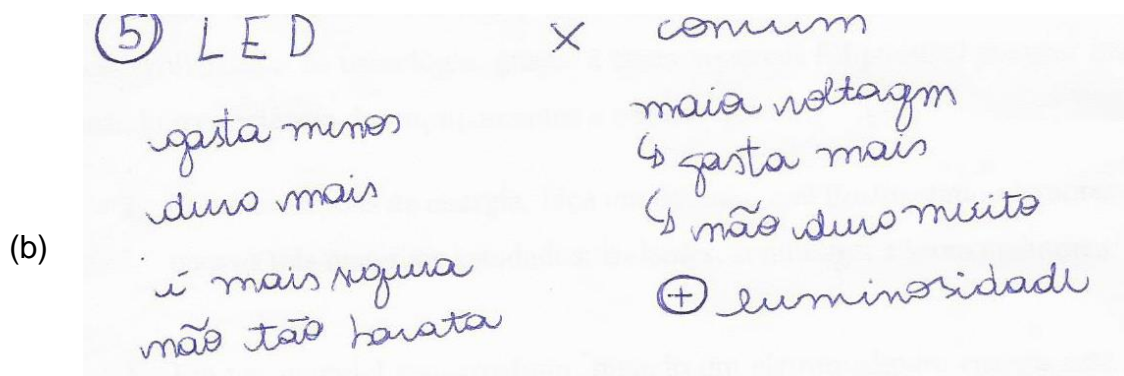 ⑤ LED × comum
gasta menos
dura mais
é mais segura
não tão barata
maior voltagm
↳ gasta mais
↳ não dura muito
⊕ luminosidade
(b)